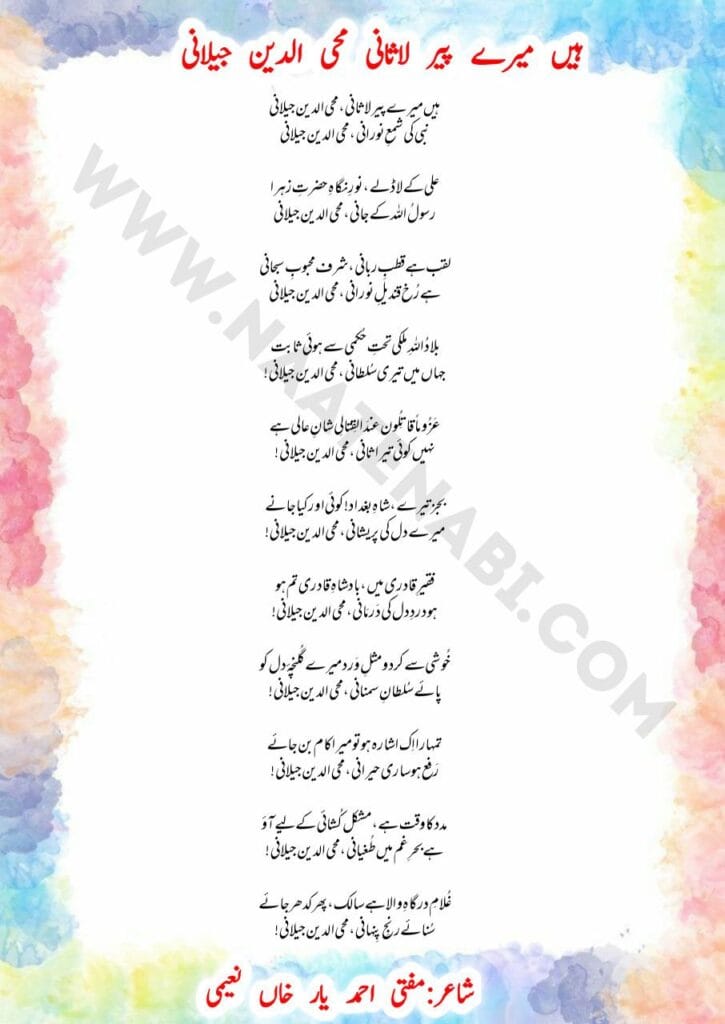 ہیں میرے پیر لاثانی محی الدین جیلانی
ہیں میرے پیر لاثانی، محی الدین جیلانی
نبی کی شمعِ نورانی، محی الدین جیلانی
علی کے لاڈلے، نورِ نگاہِ حضرتِ زہرا
رسولُ اللہ کے جانی، محی الدین جیلانی
لقب ہے قطبِ ربانی، شرف محبوبِ سبحانی
ہے رُخ قندیلِ نورانی، محی الدین جیلانی
بلادُ اللہِ ملکی تحتِ حُکمی سے ہوئی ثابت
جہاں میں تیری سُلطانی، محی الدین جیلانی!
عَزُوماً قاتلُون عندَ القِتالی شانِ عالی ہے
نہیں کوئی تیرا ثانی، محی الدین جیلانی!
بجز تیرے، شاہِ بغداد! کوئی اور کیا جانے
میرے دل کی پریشانی، محی الدین جیلانی!
فقیرِ قادری میں، بادشاہِ قادری تم ہو
ہو دردِ دل کی دَرمانی، محی الدین جیلانی!
خُوشی سے کر دو مثلِ وَرد میرے گُلنچۂ دل کو
پائے سُلطانِ سمنانی، محی الدین جیلانی!
تمہارا اِک اشارہ ہو تو میرا کام بن جائے
رَفع ہو ساری حیرانی، محی الدین جیلانی!
مدد کا وقت ہے، مشکل کُشائی کے لیے آؤ
ہے بحرِ غم میں طُغیانی، محی الدین جیلانی!
غُلامِ درگاہِ والا ہے سالکؔ، پھر کدھر جائے
سُنائے رنجِ پنہانی، محی الدین جیلانی!
شاعر: مفتی احمد یار خاں نعیمی
WWW.NAATENABI.COM